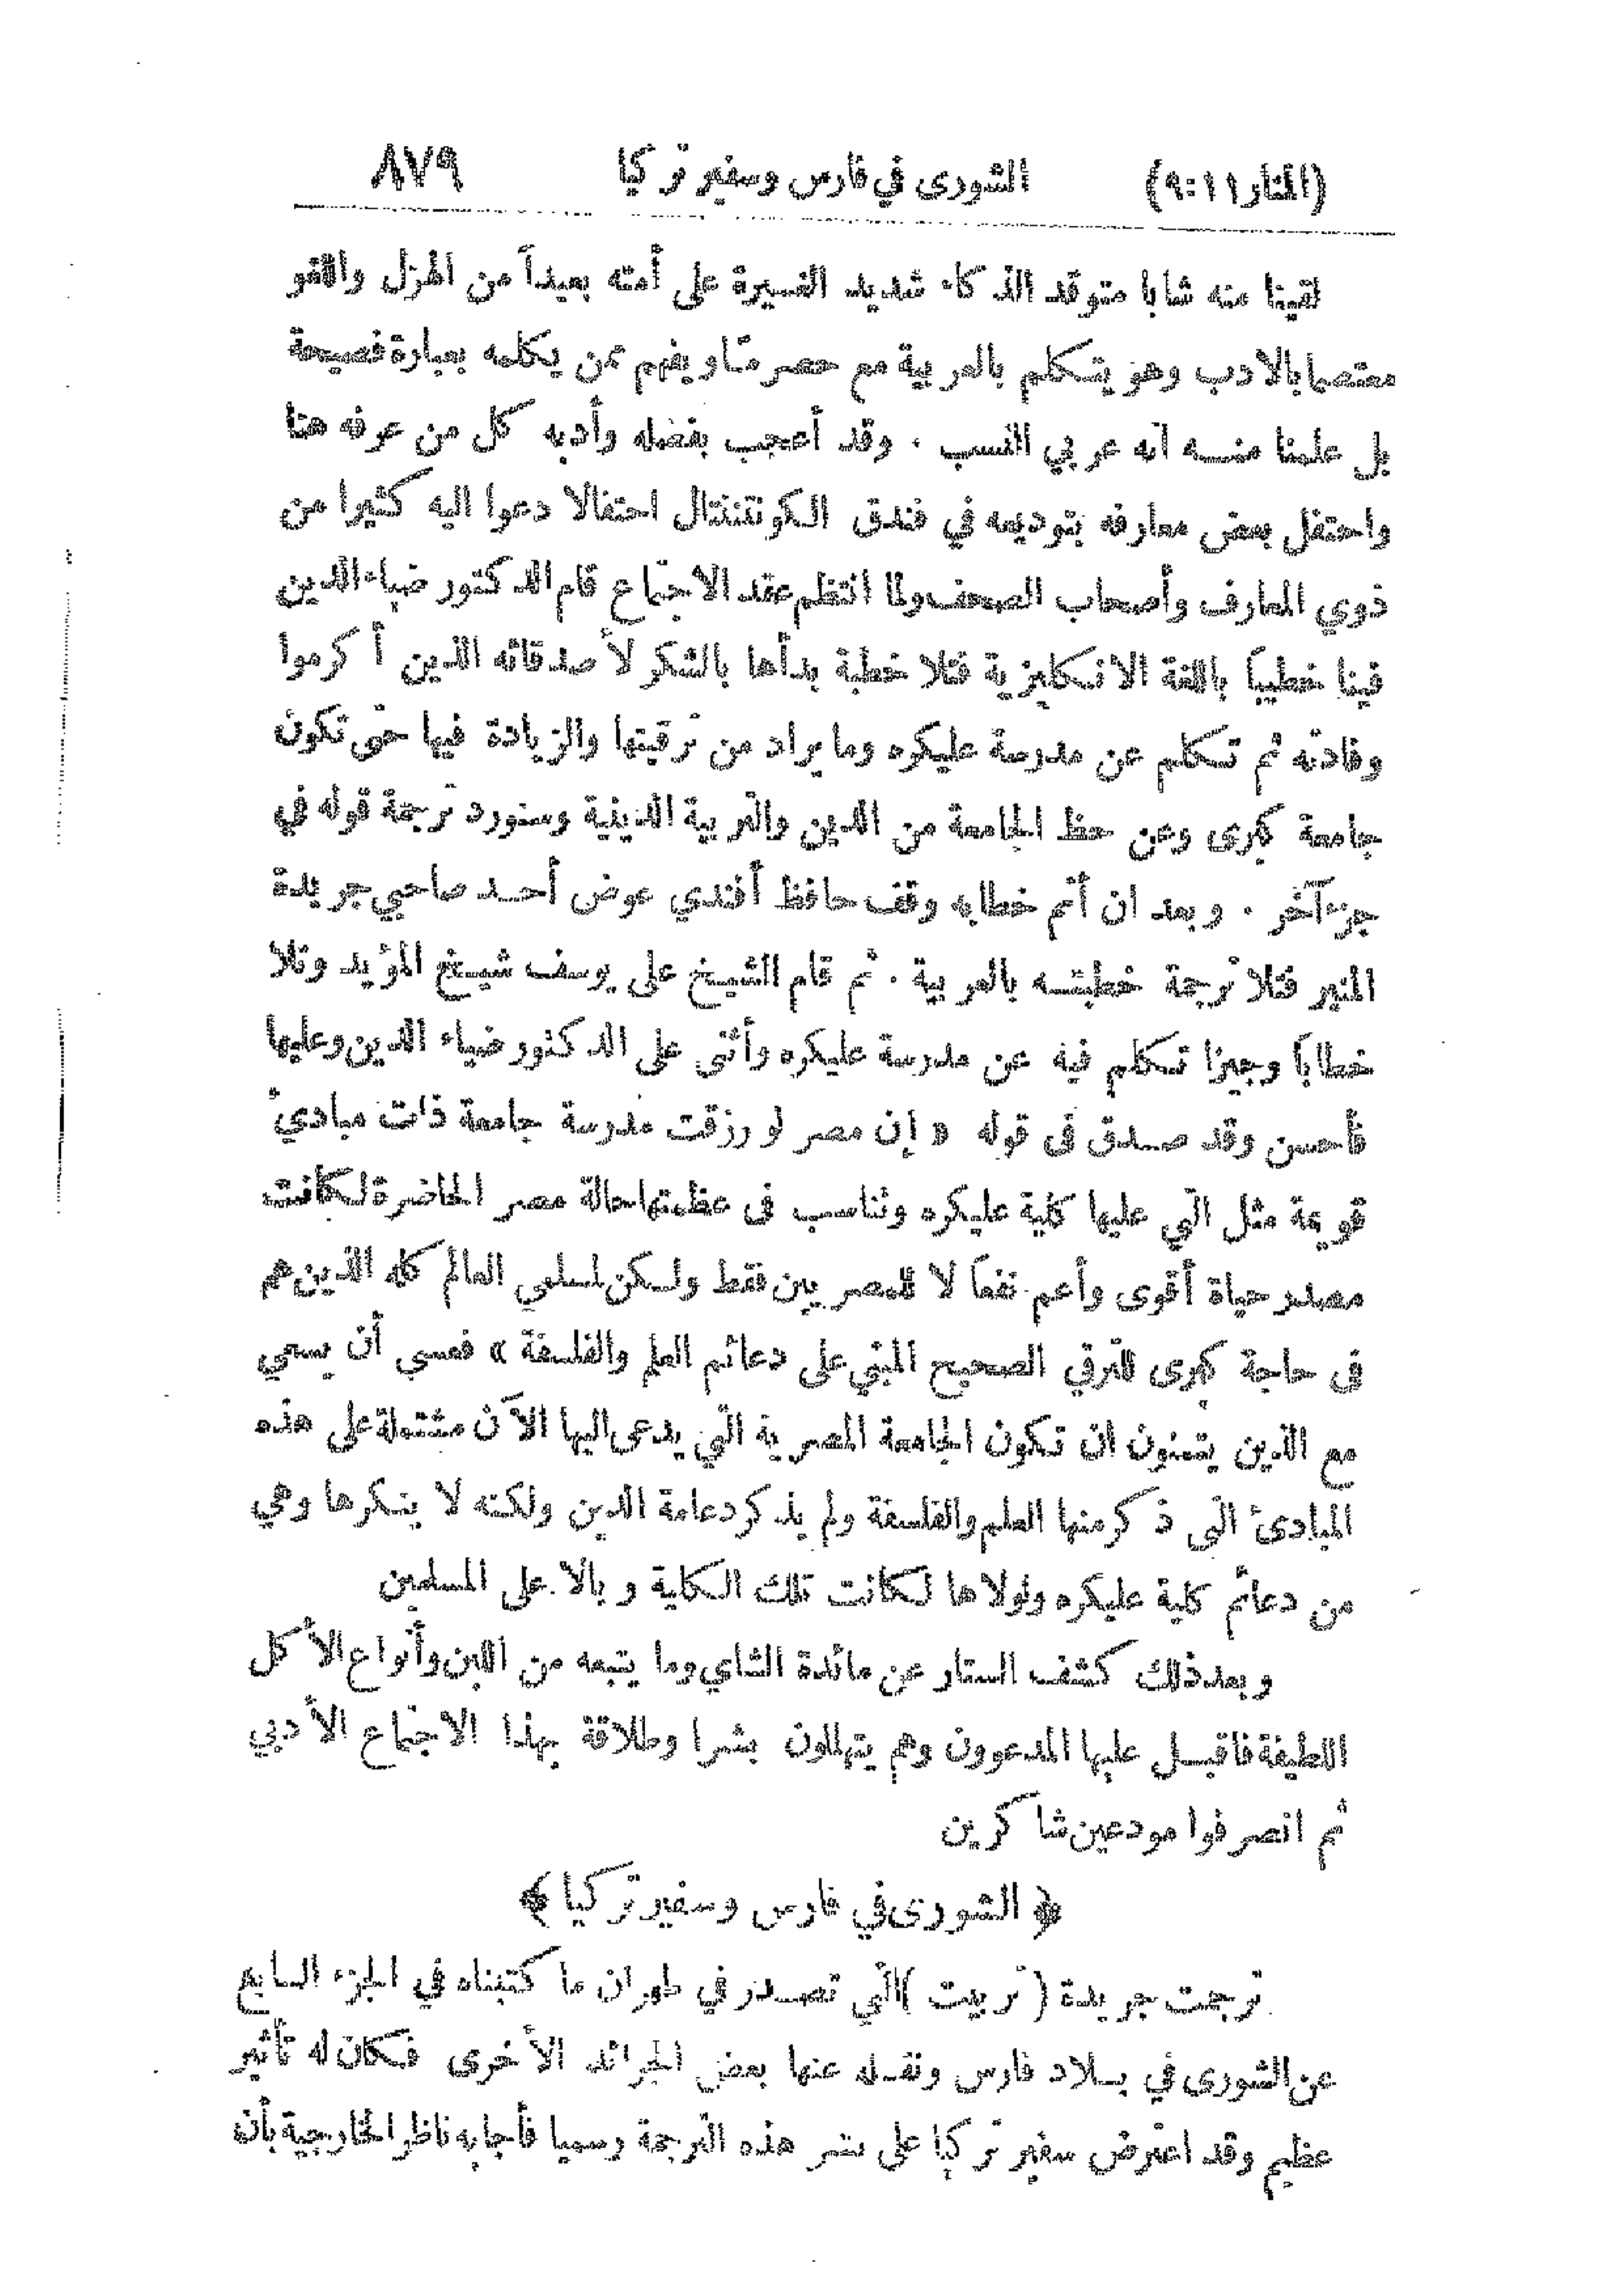 (المنار ١١:٩) الشورى في فارس وسفير تركيا ٨٧٩
لقينا منه شابا متوقد الذكاء شديد الغيرة على أمته بعيداً من الهزل واللغو
معتصما بالادب وهو يتكلم بالعربية مع حصر مّا ويفهم ممن يكلمه بعبارة فصيحة
بل علمنا منه انه عربي النسب . وقد أعجب بفضله وأدبه كل من عرفه هنا
واحتفل بعض معارفه بتوديعه في فندق الكونتننتال احتفالا دعوا اليه كثيرا من
ذوي المعارف وأصحاب الصحف ولما انتظم عقد الاجتماع قام الدكتور ضياء الدين
فينا خطيباً باللغة الانكليزية فتلا خطبة بدأها بالشكر لأصدقائه الذين أكرموا
وفادته ثم تكلم عن مدرسة عليكره وما يراد من ترقيتها والزيادة فيها حتى تكون
جامعة كبرى وعن حظ الجامعة من الدين والتربية الدينية وسنورد ترجمة قوله في
جزء آخر . وبعد ان أتم خطابه وقف حافظ أفندي عوض أحد صاحبي جريدة
المنبر فتلا ترجمة خطبته بالعربية . ثم قام الشيخ علي يوسف شيخ المؤيد وتلا
خطاباً وجيزا تكلم فيه عن مدرسة عليكره وأثنى على الدكتور ضياء الدين وعليها
فأحسن وقد صدق في قوله « إن مصر لو رزقت مدرسة جامعة ذات مبادئ
قويمة مثل التي عليها كلية عليكره وتناسب في عظمتها حالة مصر الحاضرة لكانت
مصدر حياة أقوى وأعم نفعاً لا للمصريين فقط ولكن لمسلمي العالم كله الذين هم
في حاجة كبرى للترقي الصحيح المبني على دعائم العلم والفلسفة » فعسى أن يسعى
مع الذين يتمنون ان تكون الجامعة المصرية التي يدعى اليها الآن مشتملة على هذه
المبادئ التي ذكر منها العلم والفلسفة ولم يذكر دعامة الدين ولكنه لا ينكرها وهي
من دعائم كلية عليكره ولولاها لكانت تلك الكلية وبالا على المسلمين
وبعد ذلك كشف الستار عن مائدة الشاي وما يتبعه من اللبن وأنواع الأكل
اللطيفة فاقبل عليها المدعوون وهم يتهللون بشرا وطلاقة بهذا الاجتماع الأدبي
ثم انصرفوا مودعين شاكرين
﴿ الشورى في فارس وسفير تركيا ﴾
ترجمت جريدة ( تربيت ) التي تصدر في طهران ما كتبناه في الجزء السابع
عن الشورى في بلاد فارس ونقله عنها بعض الجرائد الأخرى فكان له تأثير
عظيم وقد اعترض سفير تركيا على نشر هذه الترجمة رسميا فأجابه ناظر الخارجية بأن